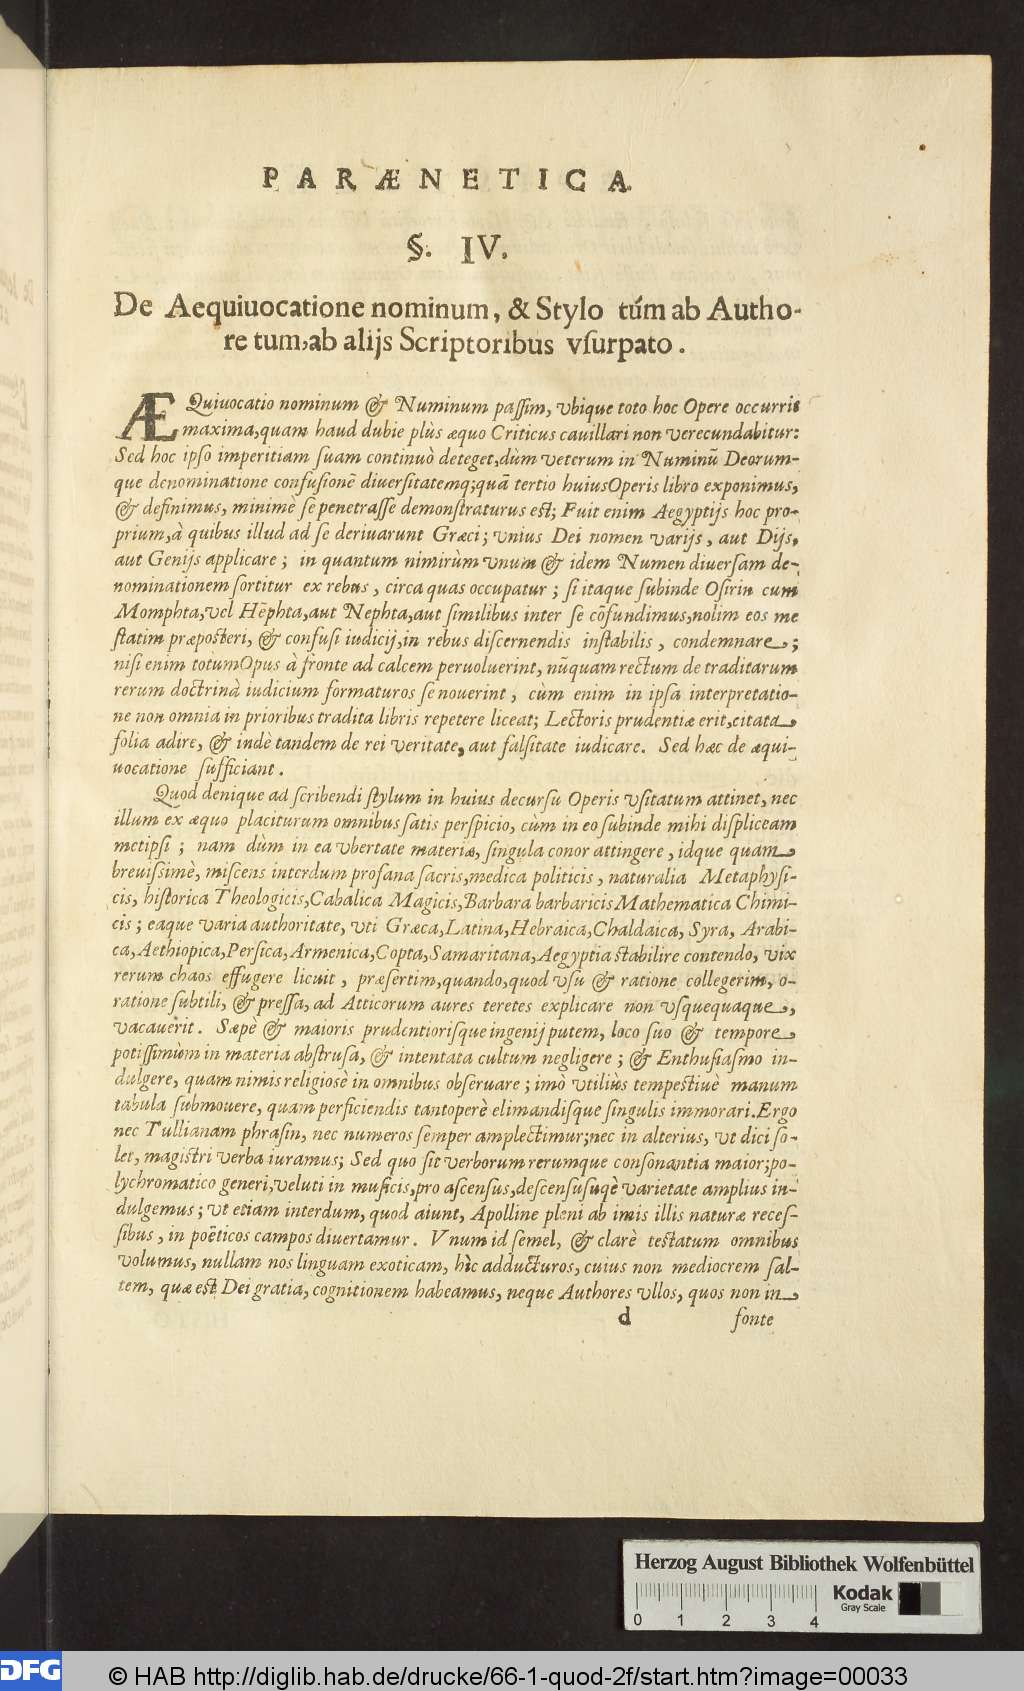 PARÆNETICA.
§. IV.
De Aequiuocatione nominum, & Stylo túm ab Autho-
re tum, ab alijs Scriptoribus vſurpato.
ÆQuiuocatio nominum & Numinum paſſim, vbique toto hoc Opere occurrit
maxima, quam haud dubie plùs æquo Criticus cauillari non verecundabitur:
Sed hoc ipſo imperitiam ſuam continuò deteget, dùm veterum in Numinū Deorum-
que denominatione confuſionē diuerſitatemq; quā tertio huius Operis libro exponimus,
& definimus, minimè ſe penetraſſe demonſtraturus eſt; Fuit enim Aegyptijs hoc pro-
prium, à quibus illud ad ſe deriuarunt Græci; vnius Dei nomen varijs, aut Dijs,
aut Genijs applicare; in quantum nimirùm vnum & idem Numen diuerſam de-
nominationem ſortitur ex rebus, circa quas occupatur; ſi itaque ſubinde Oſirin cum
Momphta, vel Hēphta, aut Nephta, aut ſimilibus inter ſe cōfundimus, nolim eos me
ſtatim præpoſteri, & confuſi iudicij, in rebus diſcernendis inſtabilis, condemnare;
niſi enim totum Opus à fronte ad calcem peruoluerint, nūquam rectum de traditarum
rerum doctrinà iudicium formaturos ſe nouerint, cùm enim in ipſa interpretatio-
ne non omnia in prioribus tradita libris repetere liceat; Lectoris prudentiæ erit, citata
folia adire, & indè tandem de rei veritate, aut falſitate iudicare. Sed hæc de æqui-
uocatione ſufficiant.
Quod denique ad ſcribendi ſtylum in huius decurſu Operis vſitatum attinet, nec
illum ex æquo placiturum omnibus ſatis perſpicio, cùm in eo ſubinde mihi diſpliceam
metipſi; nam dùm in ea vbertate materiæ, ſingula conor attingere, idque quam
breuiſſimè, miſcens interdum profana ſacris, medica politicis, naturalia Metaphyſi-
cis, hiſtorica Theologicis, Cabalica Magicis, Barbara barbaricis Mathematica Chimi-
cis; eaque varia authoritate, vti Græca, Latina, Hebraica, Chaldaica, Syra, Arabi-
ca, Aethiopica, Perſica, Armenica, Copta, Samaritana, Aegyptia ſtabilire contendo, vix
rerum chaos effugere licuit, præſertim, quando, quod vſu & ratione collegerim, o-
ratione ſubtili, & preſſa, ad Atticorum aures teretes explicare non vſquequaque,
vacauerit. Sæpè & maioris prudentioriſque ingenij putem, loco ſuo & tempore
potiſſimùm in materia abſtruſa, & intentata cultum negligere; & Enthuſiaſmo in-
dulgere, quam nimis religioſè in omnibus obſeruare; imò vtiliùs tempeſtiuè manum
tabula ſubmouere, quam perficiendis tantoperè elimandiſque ſingulis immorari. Ergo
nec Tullianam phraſin, nec numeros ſemper amplectimur; nec in alterius, vt dici ſo-
let, magiſtri verba iuramus; Sed quo ſit verborum rerumque conſonantia maior; po-
lychromatico generi, veluti in muſicis, pro aſcenſus, deſcenſuſuqè varietate amplius in-
dulgemus; vt etiam interdum, quod aiunt, Apolline pleni ab imis illis naturæ receſ-
ſibus, in poëticos campos diuertamur. Vnum id ſemel, & clarè teſtatum omnibus
volumus, nullam nos linguam exoticam, hìc adducturos, cuius non mediocrem ſal-
tem, quæ eſt Dei gratia, cognitionem habeamus, neque Authores vllos, quos non in
d fonte
Herzog August Bibliothek Wolfenbüttel
0 1 2 3 4
Kodak
Gray Scale
DFG © HAB http://diglib.hab.de/drucke/66-1-quod-2f/start.htm?image=00033